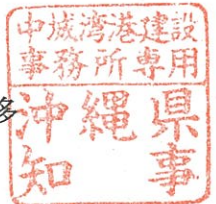 中城湾港建設
事務所専用
沖縄県
知事